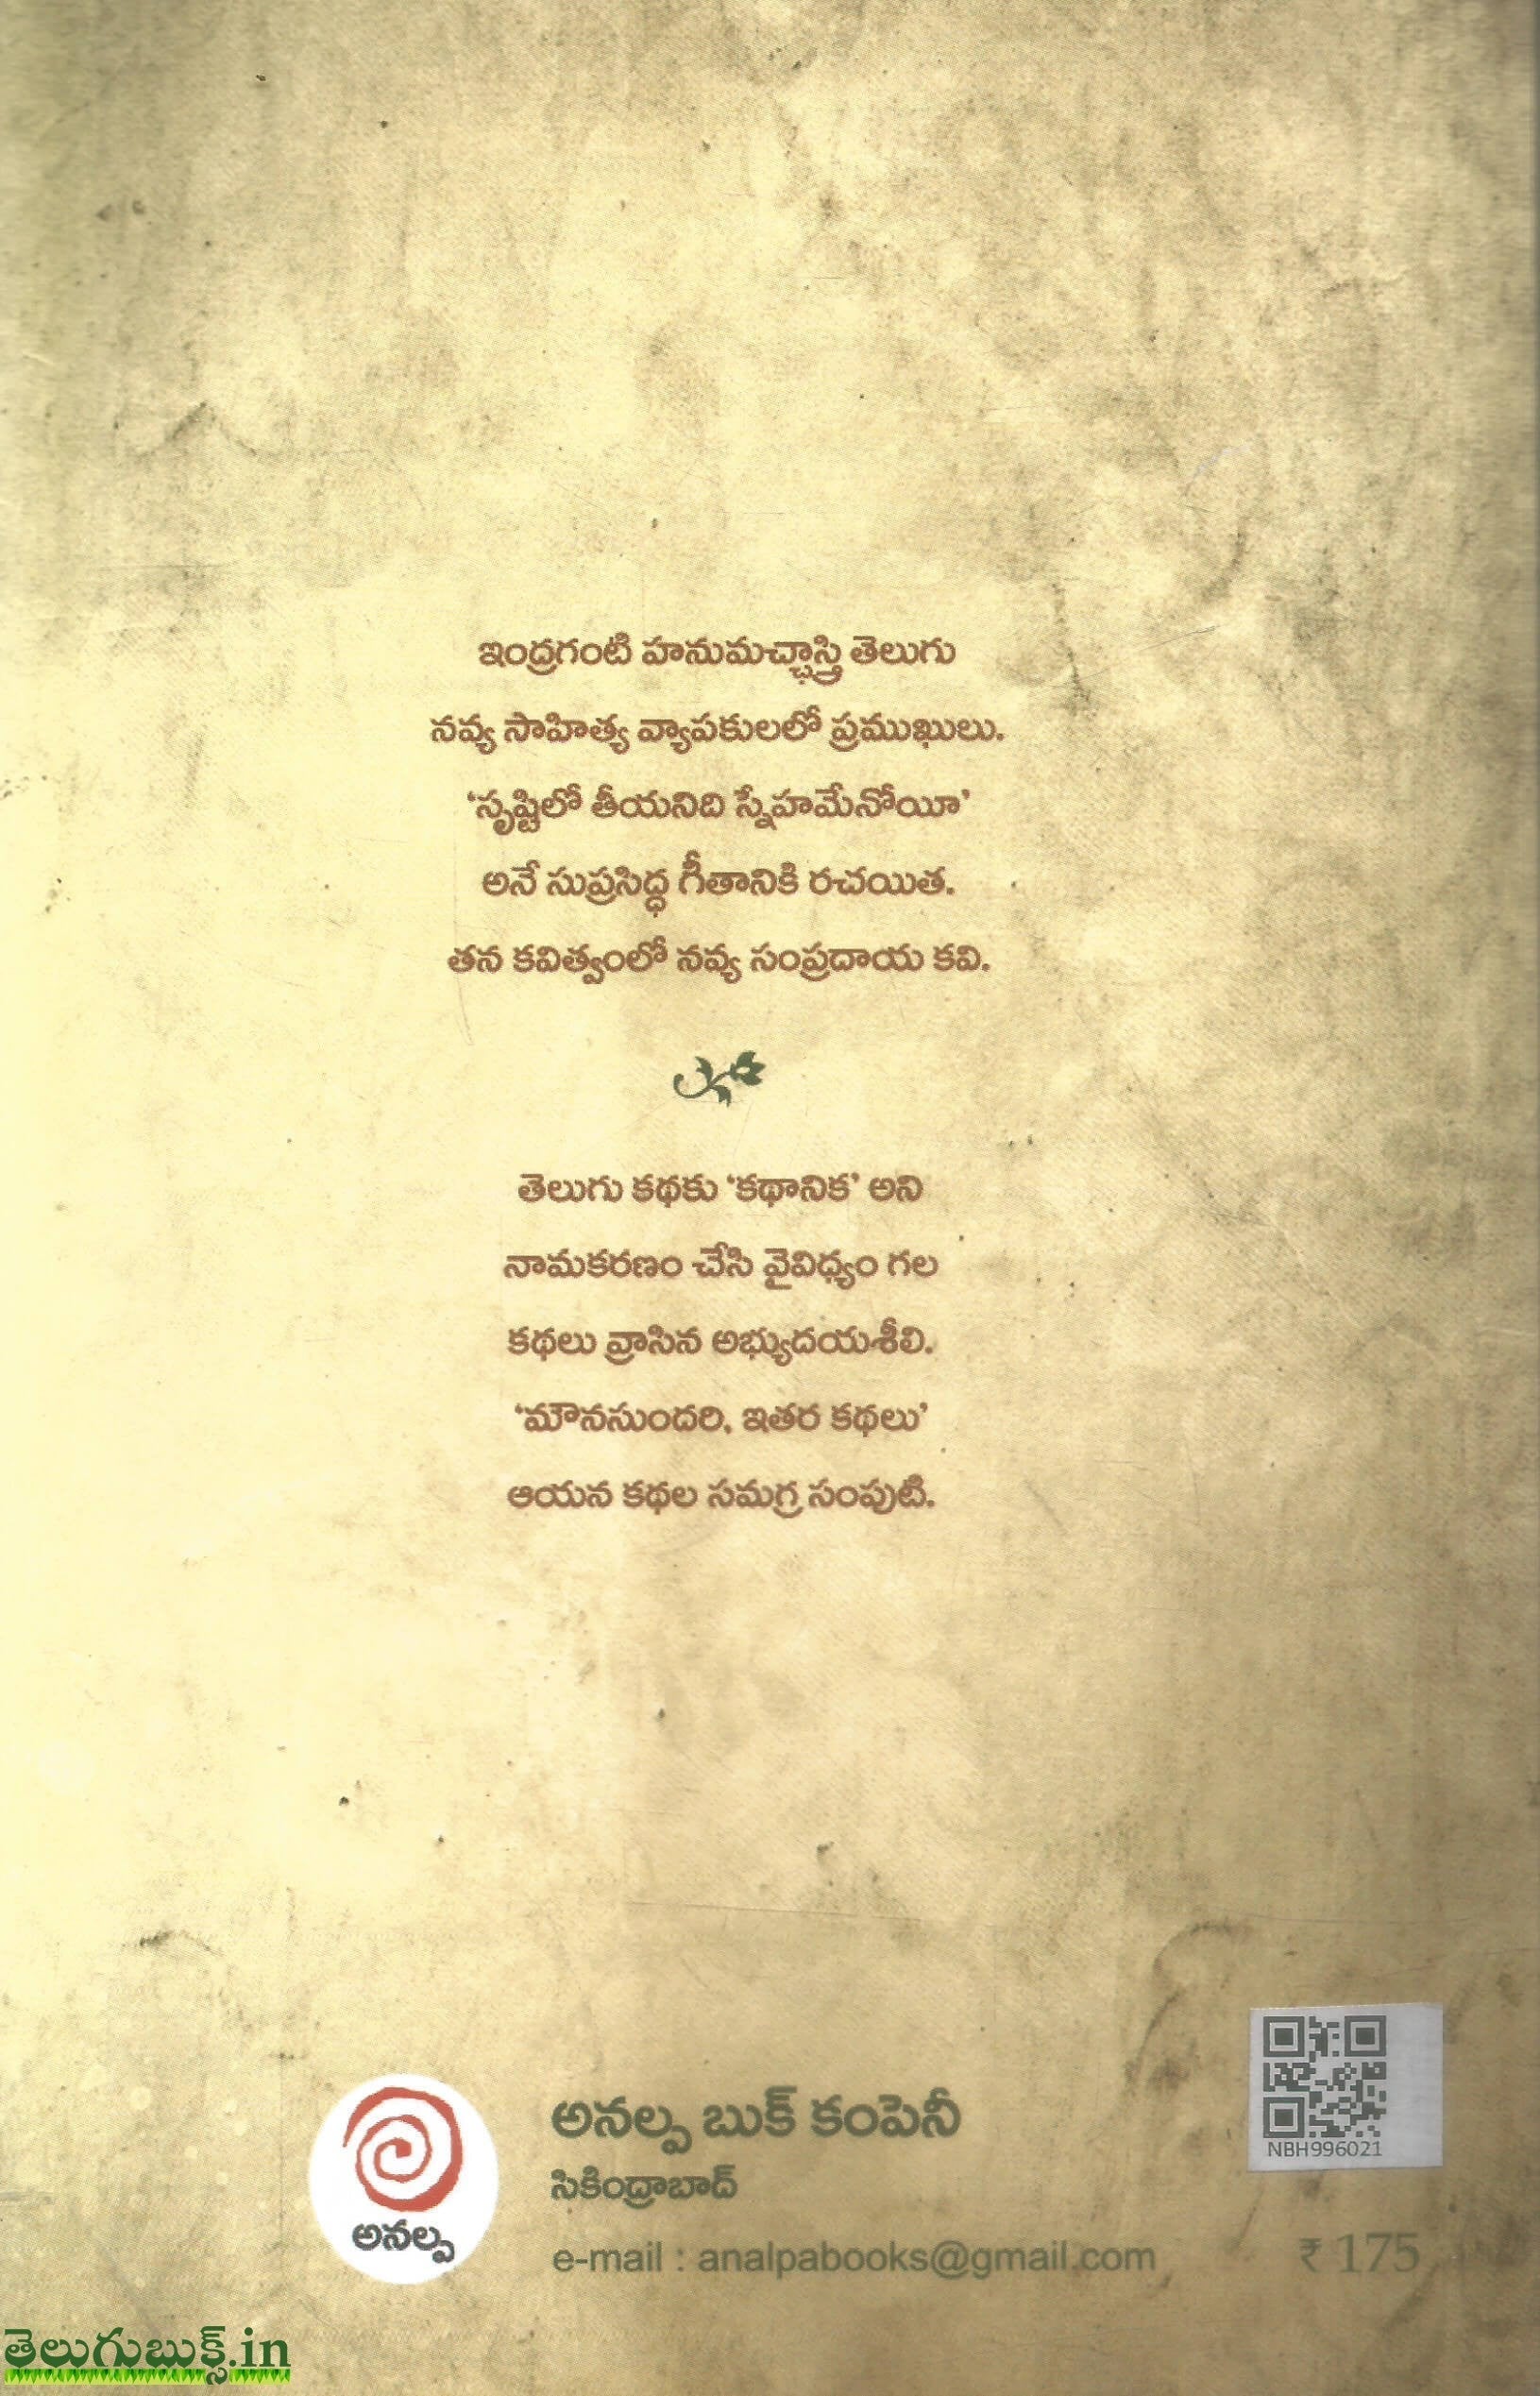 ఇంద్రగంటి హనుమచ్ఛాస్త్రి తెలుగు
నవ్య సాహిత్య వ్యాపకులలో ప్రముఖులు.
‘సృష్టిలో తీయనిది స్నేహమేనోయీ’
అనే సుప్రసిద్ధ గీతానికి రచయిత.
తన కవిత్వంలో నవ్య సంప్రదాయ కవి.
తెలుగు కథకు ‘కథానిక’ అని
నామకరణం చేసి వైవిధ్యం గల
కథలు వ్రాసిన అభ్యుదయశీలి.
‘మౌనసుందరి, ఇతర కథలు’
ఆయన కథల సమగ్ర సంపుటి.
NBH996021
అనల్ప బుక్ కంపెనీ
సికింద్రాబాద్
అనల్ప
e-mail : analpabooks@gmail.com
₹ 175
తెలుగుబుక్స్.in